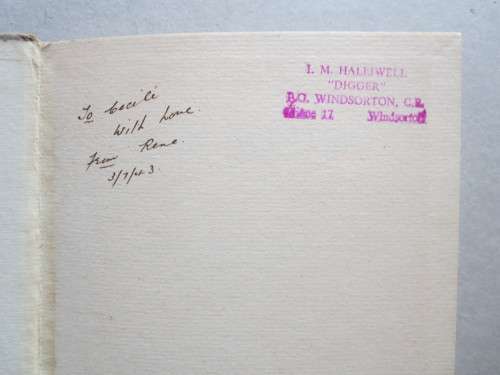 To Cecile
With love.
From Rene
3/7/43
I. M. HALLIWELL
"DIGGER"
P.O. WINDSORTON, C.P.
Phone 17 Windsorton